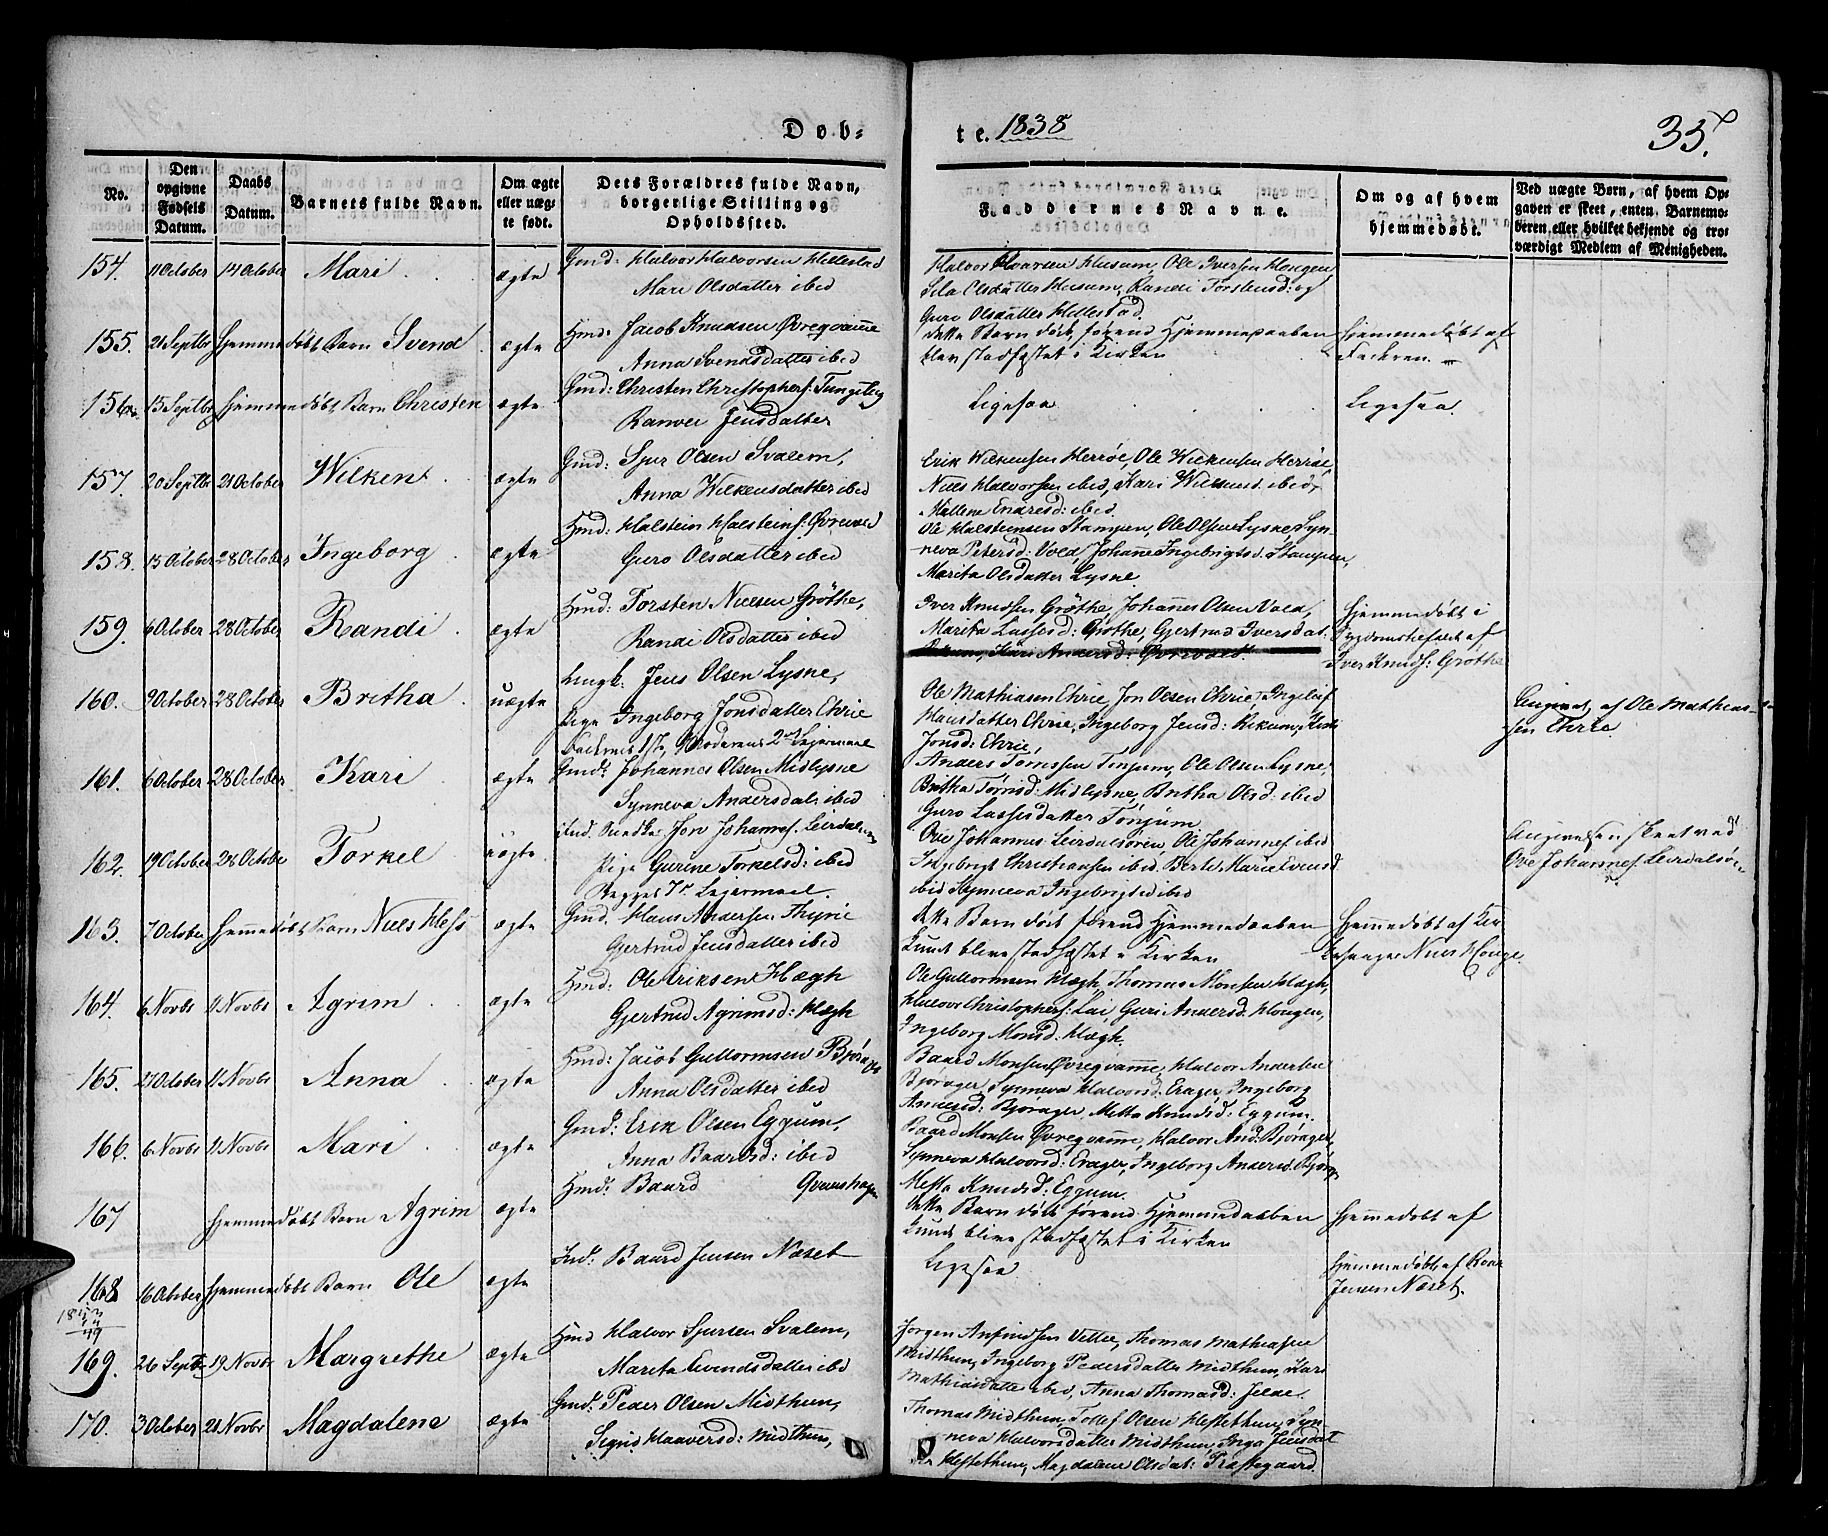 Døb-
te. 1838
35.
No.
Den opgivne Fødsels Datum.
Daabs Datum.
Barnets fulde Navn.
Om ægte eller uægte født.
Dets Forældres fulde Navn, borgerlige Stilling og Opholdssted.
Faddernes Navne.
Om og af hvem hjemmedøbt.
Ved uægte Børn, af hvem Opgaven er skeet, enten Barnemoderen eller hvilket bekjendt og troværdigt Medlem af Menigheden.
154. 11 October 14 October Mari ægte
Gmd: Halvor Halvorsen Hellestad
Mari Olsdatter ibid
Halvor Husum, Ole Iversen Hougen
Olsdatter Husum, Randi Torstensd: og
Guro Olsdatter Hellestad.
155. 21 Septbr Hjemmedøbt Barn Svend ægte
Hmd: Jacob Knudsen Øvreqvamme
Anna Svendsdatter ibid
dette Barn døde førend Hjemmedaaben
blev stadfæstet i Kirken
Hjemmedøbt af
Faderen.
156. 15 Septbr Hjemmedøbt Barn Christen ægte
Gmd: Christen Christophers:
Ranvei Jensdatter
Ligesaa
Ligesaa.
157. 20 Septbr 21 October Wilkent ægte
Gmd: Sjur Olsen Svalem,
Anna Wilkensdatter ibid
Erik Wilkensen Herrøe, Ole Wilkensen Herrøe,
Niels Halvorsen ibid, Kari ibid,
Endresd: ibid.
158. 15 October 28 October Ingeborg ægte
Hmd: Halstein Halsteins: Øvrevold
Guro Olsdatter ibid
Ole Halstensen Stampen, Ole Olsen Lysne, Syn-
neva Petersd: Vold, Johane Ingebrigtsd. Stampen,
Marita Olsdatter Lysne.
159. 6 October 28 October Randi ægte
Hmd: Torsten Nielsen Grøthe,
Randi Olsdatter ibid
Iver Knudsen Grøthe, Johannes Olsen Vold,
Marita Lassesd: Grøthe, Gjertrud Iversdat.
Hjemmedøbt i
af
Iver Knuds: Grøthe
160. 9 October 28 October Britha uægte
Ungk: Jens Olsen Lysne,
Pige Ingeborg Jonsdatter Ehrie
Faderens 1ste, Moderens 2det Leiermaal
Ole Mathiasen Ehrie, Jon Olsen Ehrie,
Hansdatter Ehrie, Ingeborg Jensd:
Jonsd: Ehrie,
Angivet af Ole Mathias-
sen Ehrie.
161. 6 October 28 October Kari ægte
Gmd: Johannes Olsen Midlysne
Synneva Andersdat: ibid
Anders Tønjum, Ole Olsen Lysne,
Britha Midlysne, Britha Olsd: ibid
Guro Lassesdatter Tønjum
162. 19 October 28 October Torkel uægte
Jon Johannes. Leirdalsøren
Pige Gurine Torkelsd: ibid
Begges 1ste Leiermaal.
Ove Johannes Leirdalsøren, Ole Johannes ibid
Ingebrigt Christiansen ibid. Marie Evensd.
ibid Synneva Ingebrigtsd ibid
Angivelsen skeet ved
Ove Johannes Leirdalsøren
163. 7 October Hjemmedøbt Barn Niels ægte
Gmd. Hans Andersen Thyrie
Gjertrud Jensdatter ibid
dette Barn død førend Hjemmedaaben
kunde blive stadfæstet i Kirken
Hjemmedøbt af Kir-
kesanger Niels
164. 6 Novbr 11 Novbr Agrim ægte
Hmd: Ole Eriksen Hægh
Gjertrud Agrimsd: Hægh
Ole Gullormsen Hægh, Thomas Monsen Hægh,
Halvor Christophers: Lai Guri Andersd: Hougen,
Ingeborg Monsd: Hægh.
165. 27 October 11 Novbr Anna ægte
Hmd: Jacob Gullormsen Bjøråger
Anna Olsdatter ibid
Baard Monsen Øvreqvamme, Halvor Andersen
Bjørager, Synneva Halvorsd: Erager, Ingeborg
Andersd: Bjørager, Metta Knudsd: Eggum.
166. 6 Novbr 11 Novbr Mari ægte
Gmd: Erik Olsen Eggum,
Anna Baardsd: ibid
Baard Monsen Øvreqvamme, Halvor And: Bjørager,
Synneva Halvorsd: Erager, Ingeborg Andersd. Bjørag.
Metta Knudsd: Eggum.
167 Hjemmedøbt Barn Agrim ægte
Hmd: Baard
dette Barn døde førend Hjemmedaaben
kunde blive stadfæstet i Kirken
Hjemmedøbt af
168 16 October Hjemmedøbt Barn Ole ægte
Ind: Baard Jensen Næset
Ligesaa
Hjemmedøbt af
Jensen Næset.
49
169. 26 Septb 19 Novbr Margrethe ægte
Hmd Halvor Sjursen Svalem,
Marita Evindsdatter ibid
Jørgen Anfindsen Vetlee, Thomas Mathiasen
Midthun, Ingeborg Pedersdatter Midthun, Kari
Mathiasdatter ibid, Anna Thomasd:
170. 3 October 21 Novbr Magdalena ægte
Gmd: Peder Olsen Midthun,
Sigrid Haaversd: Midthun,
Thomas Midthun, Tollef Olsen Hestethun, Syn-
neva Halvorsdatter Midthun, Inga Jensdat
ter Hestethun, Magdalene Olsdat: Præstegaard